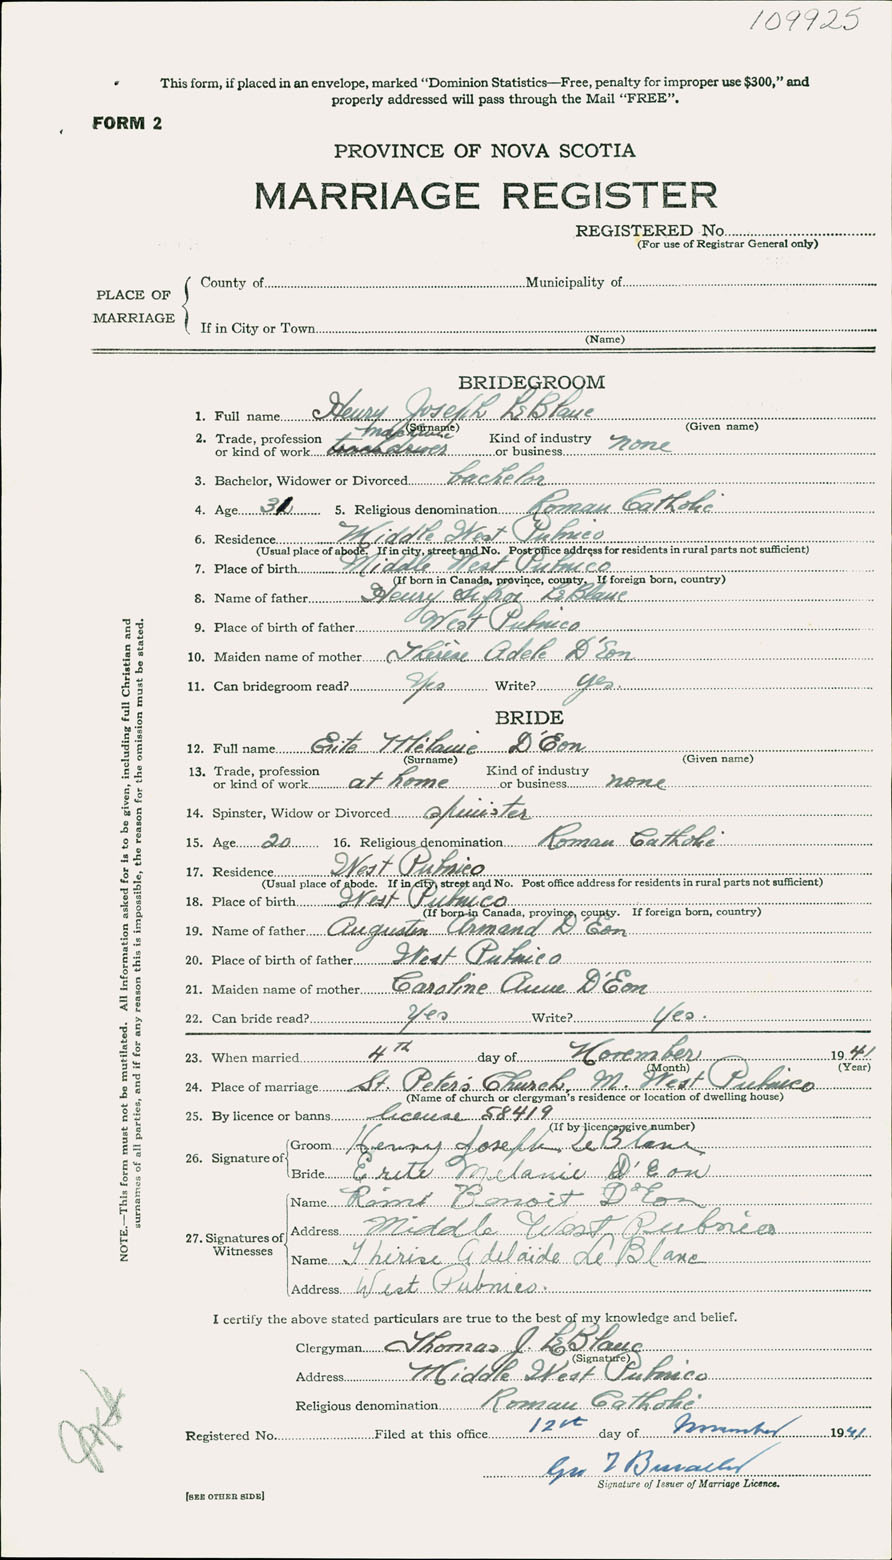 109925
This form, if placed in an envelope, marked "Dominion Statistics—Free, penalty for improper use $300," and
properly addressed will pass through the Mail "FREE".
FORM 2
PROVINCE OF NOVA SCOTIA
MARRIAGE REGISTER
REGISTERED No.
(For use of Registrar General only)
PLACE OF MARRIAGE
County of Municipality of
If in City or Town
(Name)
BRIDEGROOM
1. Full name Henry Joseph LeBlanc
(Surname) (Given name)
2. Trade, profession or kind of work Kind of industry or business none
3. Bachelor, Widower or Divorced bachelor
4. Age 31 5. Religious denomination Roman Catholic
6. Residence Middle West Pubnico
(Usual place of abode. If in city, street and No. Post office address for residents in rural parts not sufficient)
7. Place of birth Middle West Pubnico
(If born in Canada, province, county. If foreign born, country)
8. Name of father Henry LeBlanc
9. Place of birth of father West Pubnico
10. Maiden name of mother Thérèse Adele D'Eon
11. Can bridegroom read? Yes Write? yes.
BRIDE
12. Full name Erite Mélanie D'Eon
(Surname) (Given name)
13. Trade, profession or kind of work at home Kind of industry or business none
14. Spinster, Widow or Divorced spinster
15. Age 20 16. Religious denomination Roman Catholic
17. Residence West Pubnico
(Usual place of abode. If in city, street and No. Post office address for residents in rural parts not sufficient)
18. Place of birth West Pubnico
(If born in Canada, province, county. If foreign born, country)
19. Name of father Augustin Armand D'Eon
20. Place of birth of father West Pubnico
21. Maiden name of mother Caroline Anne D'Eon
22. Can bride read? Yes Write? Yes.
23. When married 4th day of November 1941
(Month) (Year)
24. Place of marriage St. Peter's Church, M. West Pubnico
(Name of church or clergyman's residence or location of dwelling house)
25. By licence or banns license 58419
(If by licence give number)
26. Signature of Groom Henry Joseph LeBlanc
Bride Erite Melanie D'Eon
27. Signatures of Witnesses
Name Rémi Benoit D'Eon
Address Middle West Pubnico
Name Thérise Adelaide Le Blanc
Address West Pubnico.
I certify the above stated particulars are true to the best of my knowledge and belief.
Clergyman Thomas J. LeBlanc
(Signature)
Address Middle West Pubnico
Religious denomination Roman Catholic
Registered No. Filed at this office 12th day of November 1941
Signature of Issuer of Marriage Licence.
[SEE OTHER SIDE]
NOTE.—This form must not be mutilated. All information asked for is to be given, including full Christian and
surnames of all parties, and if for any reason this is impossible, the reason for the omission must be stated.